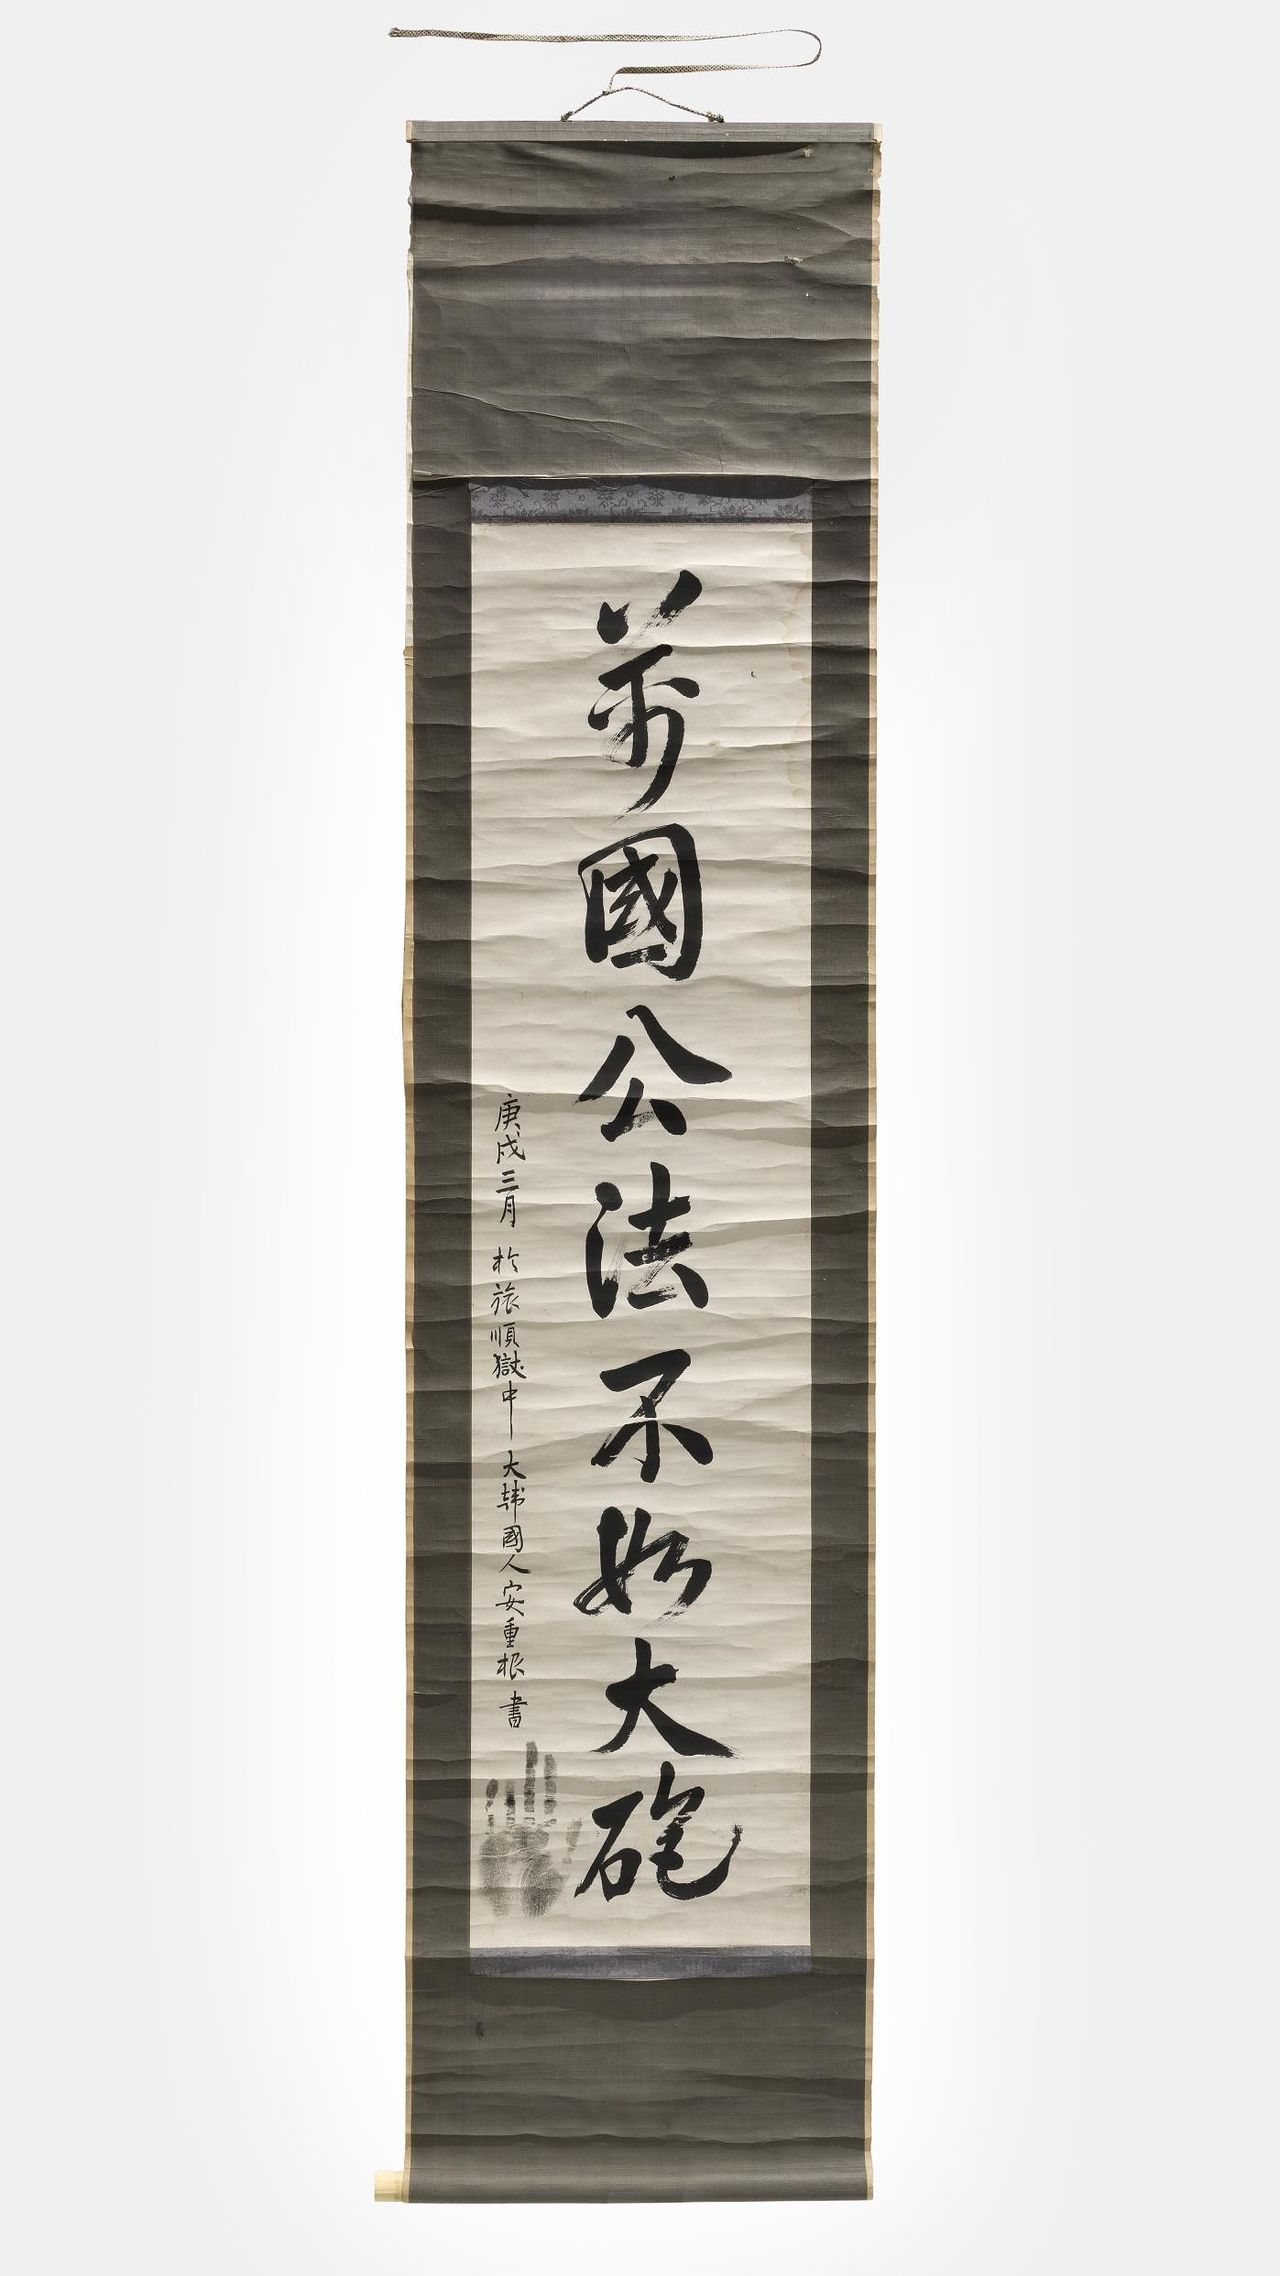 萬國公法不如大砲
庚戌三月 於旅順獄中 大韓國人安重根 書